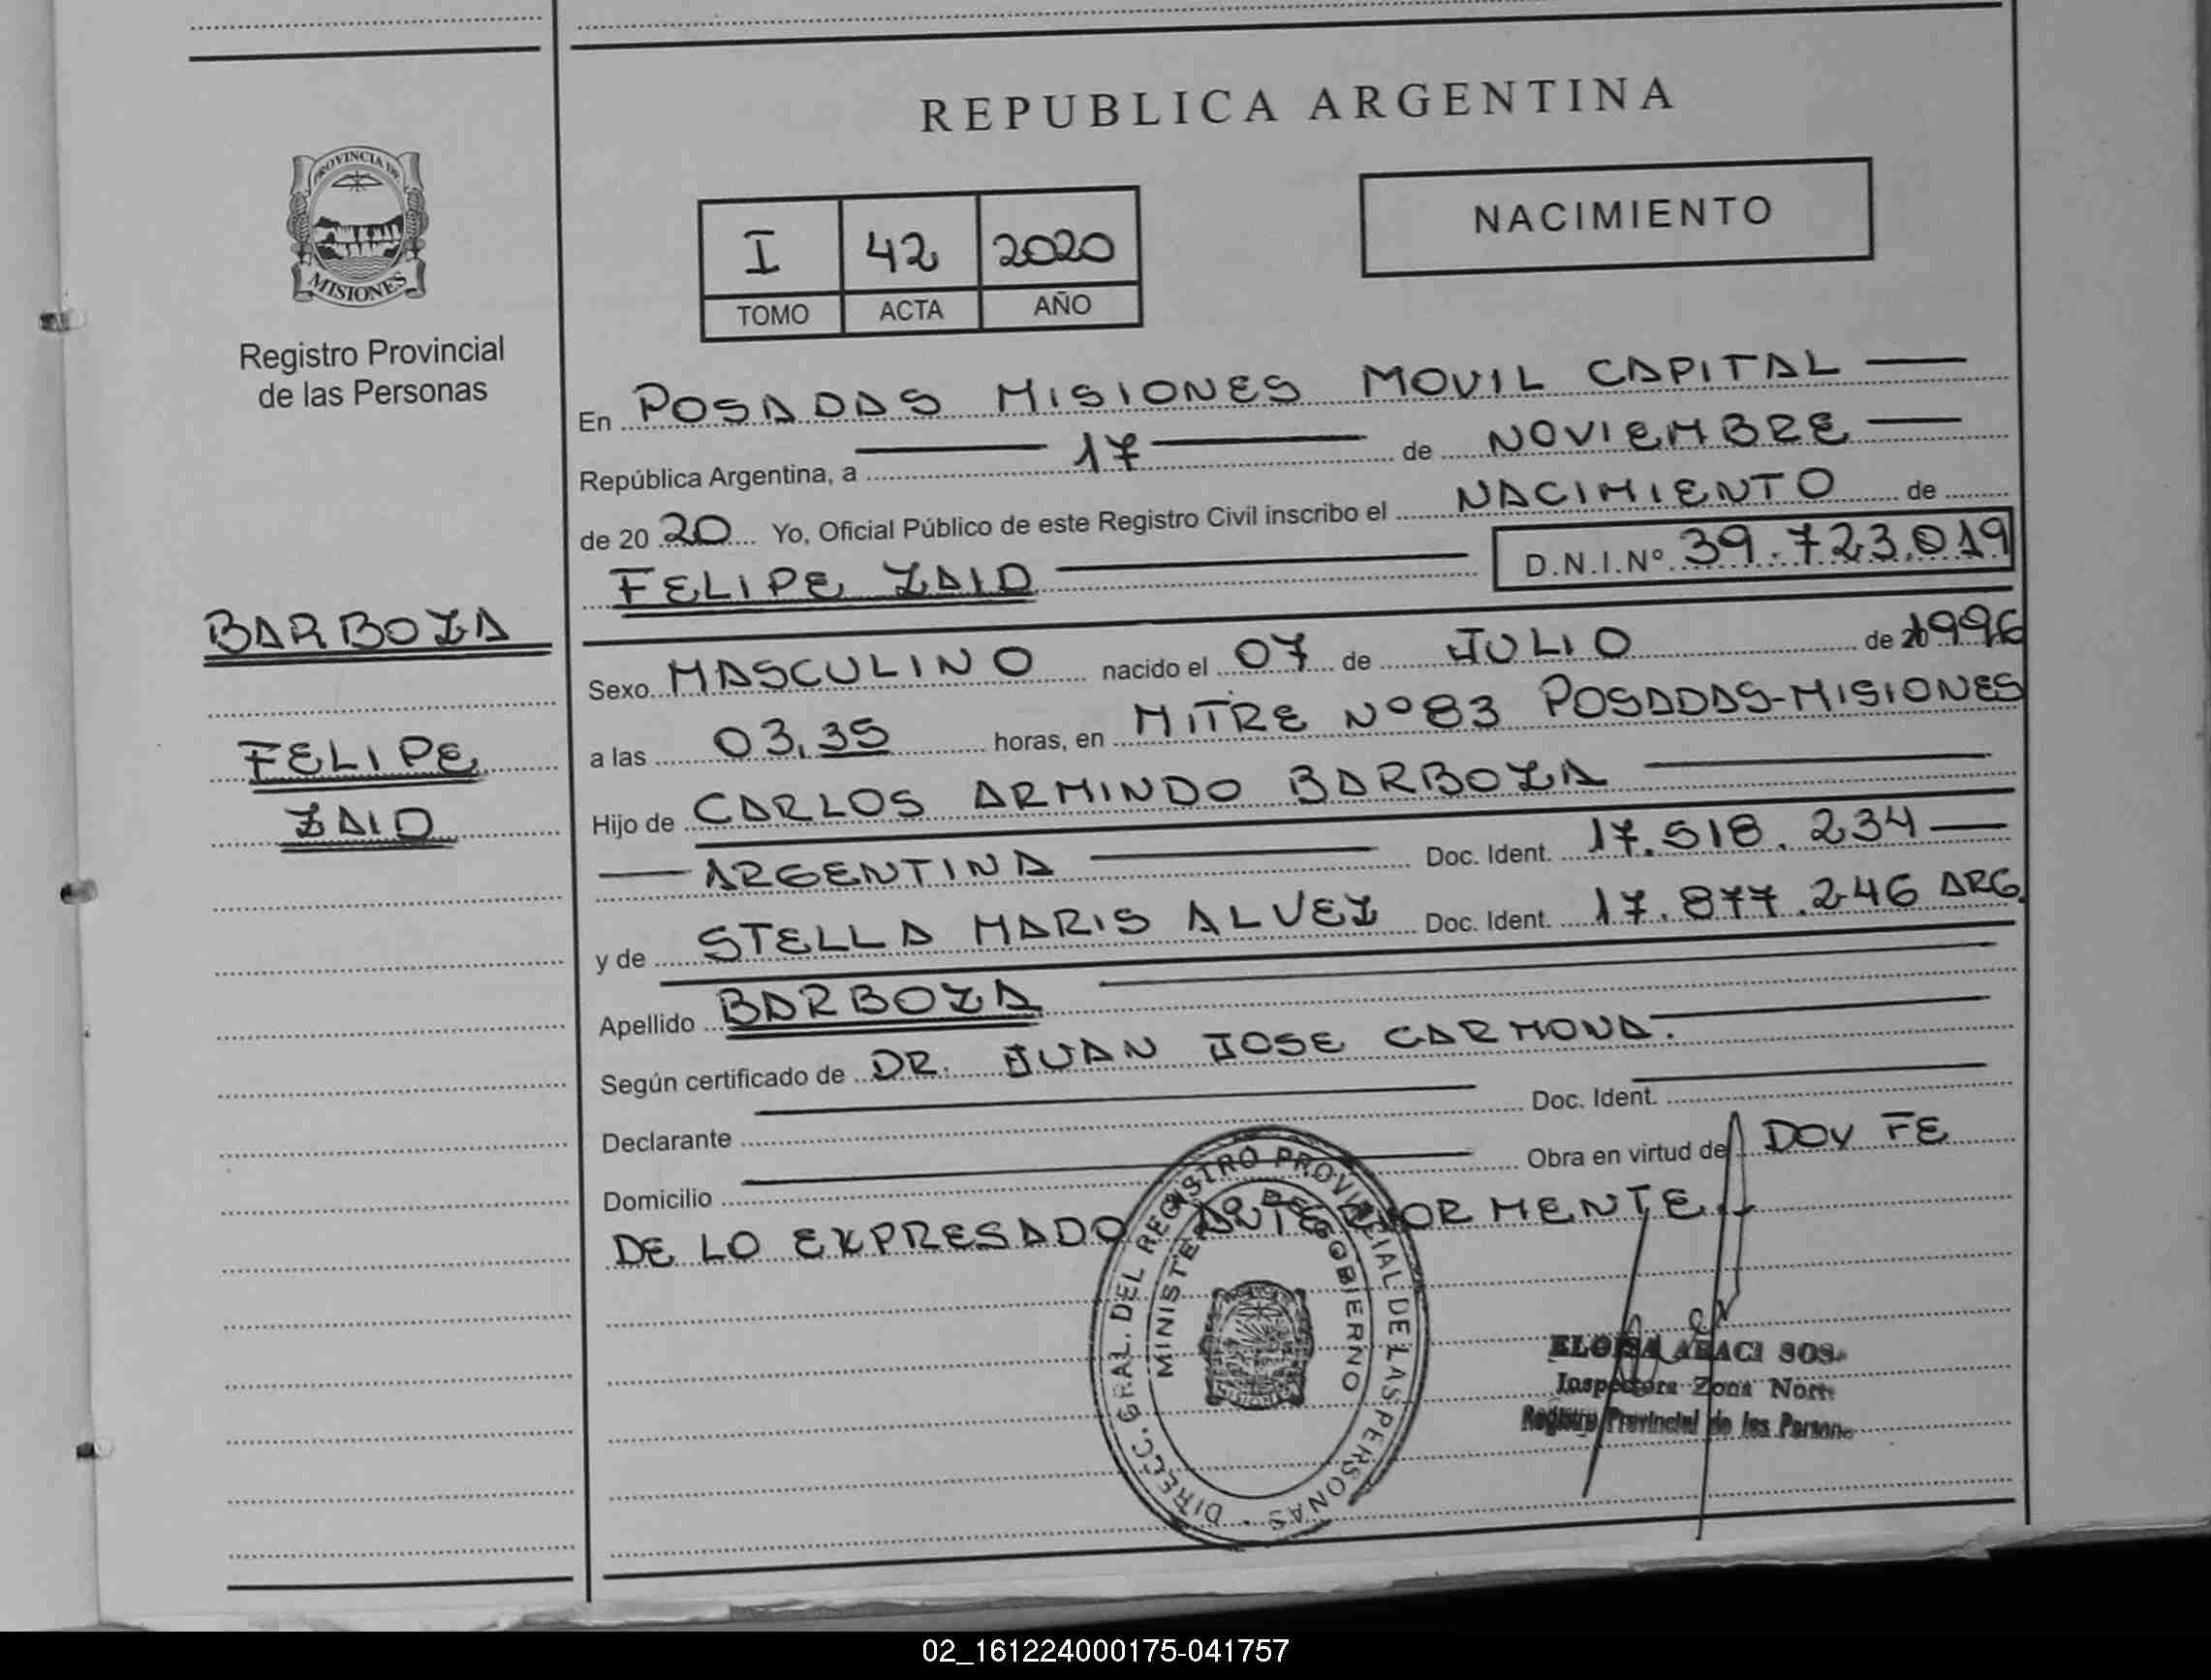 REPUBLICA ARGENTINA
PROVINCIA DE
MISIONES
Registro Provincial
de las Personas
I 42 2020
TOMO ACTA AÑO
NACIMIENTO
En POSADAS MISIONES MOVIL CAPITAL
República Argentina, a 17 de NOVIEMBRE
de 20 20 Yo, Oficial Público de este Registro Civil inscribo el NACIMIENTO de
FELIPE ZAID D.N.I.Nº 39.723.019
BARBOZA
FELIPE
ZAID
Sexo MASCULINO nacido el 07 de JULIO de 1996
a las 03,35 horas, en MITRE Nº83 POSADAS-MISIONES
Hijo de CARLOS ARMINDO BARBOZA
ARGENTINA Doc. Ident. 17.518.234
y de STELLA MARIS ALVEZ Doc. Ident. 17.877.246 ARG.
Apellido BARBOZA
Según certificado de DR. JUAN JOSE CARMONA.
Declarante Doc. Ident.
Domicilio Obra en virtud de DOY FE
DE LO EXPRESADO ANTERIORMENTE.
DIRECC. GRAL. DEL REGISTRO PROVINCIAL DE LAS PERSONAS
MINISTERIO DE GOBIERNO
ELOISA
Inspectora Zona Norte
Registro Provincial de las Person
02_161224000175-041757